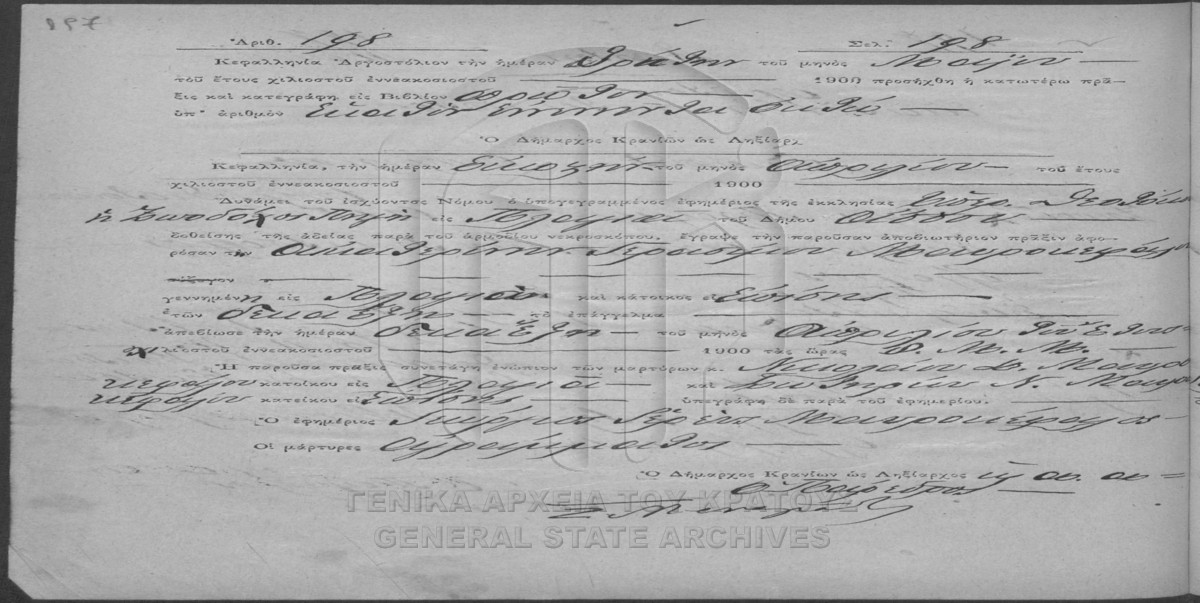 197
Ἀριθ. 198 Σελ. 198
Κεφαλληνία Ἀργοστόλιον τὴν ἡμέραν τρίτην τοῦ μηνὸς Μαΐου
τοῦ ἔτους χιλιοστοῦ ἐννεακοσιοστοῦ 1900 προσήχθη ἡ κατωτέρω πρᾶ-
ξις καὶ κατεγράφη εἰς Βιβλίον πρῶτον
ὑπ' ἀριθμὸν ἑκατὸν ἐννενῆντα ὀκτώ
Ὁ Δήμαρχος Κρανίων ὡς Ληξίαρχ
Κεφαλληνία, τὴν ἡμέραν τοῦ μηνὸς Ἀπριλίου τοῦ ἔτους
χιλιοστοῦ ἐννεακοσιοστοῦ 1900
Δυνάμει τοῦ ἰσχύοντος Νόμου ὁ ὑπογεγραμμένος ἐφημέριος τῆς ἐκκλησίας Θεοτόκου
ἡ Ζωοδόχος Πηγὴ εἰς τοῦ Δήμου
δοθείσης τῆς ἀδείας παρὰ τοῦ ἁρμοδίου νεκροσκόπου, ἔγραψε τὴν παροῦσαν ἀποβιωτήριον πρᾶξιν ἀφο-
ρῶσαν τὴν Αἰκατερίνην Γερασίμου Μαυροκέφαλου
γεννημένη εἰς καὶ κάτοικος εἰς ἐπίσης
ἐτῶν δέκα ἓξη τὸ ἐπάγγελμα
ἀπεβίωσε τὴν ἡμέραν δέκα ἕξη τοῦ μηνὸς Ἀπριλίου τοῦ ἔτους
χιλιοστοῦ ἐννεακοσιοστοῦ 1900 τὰς ὥρας Μ. Μ.
Ἡ παροῦσα πρᾶξις συνετάγη ἐνώπιον τῶν μαρτύρων κ. Νικολάου Μαυρο
κεφάλου κατοίκου εἰς καὶ Σωτηρίου Ν. Μαυρο
κεφάλου κατοίκου εἰς ἐπίσης ὑπεγράφη δὲ παρὰ τοῦ ἐφημερίου.
Ὁ ἐφημέριος Γεώργιος Ἱερεὺς Μαυροκέφαλος
Οἱ μάρτυρες ἀγράμματοι
Ὁ Δήμαρχος Κρανίων ὡς Ληξίαρχος
ὁ Πάρεδρος
ΓΕΝΙΚΑ ΑΡΧΕΙΑ ΤΟΥ ΚΡΑΤΟΥΣ
GENERAL STATE ARCHIVES